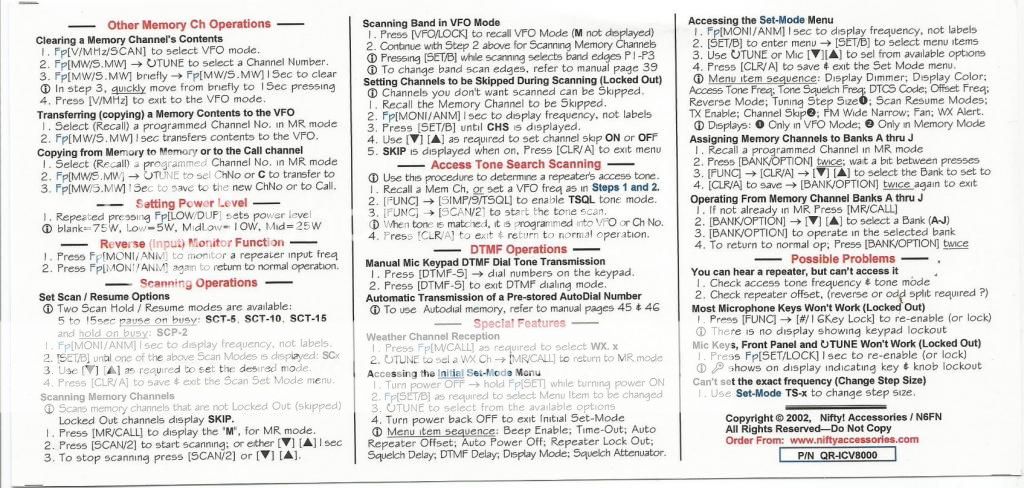 Other Memory Ch Operations
Clearing a Memory Channel's Contents
1. Fp[V/MHz/SCAN] to select VFO mode.
2. Fp[MW/S.MW] → ↻TUNE to select a Channel Number.
3. Fp[MW/S.MW] briefly → Fp[MW/S.MW] 1Sec to clear
ⓘ In step 3, quickly move from briefly to 1Sec pressing
4. Press [V/MHz] to exit to the VFO mode.
Transferring (copying) a Memory Contents to the VFO
1. Select (Recall) a programmed Channel No. in MR mode
2. Fp[MW/S.MW] 1sec transfers contents to the VFO.
Copying from Memory to Memory or to the Call channel
1. Select (Recall) a programmed Channel No. in MR mode
2. Fp[MW/S.MW] → ↻TUNE to sel ChNo or C to transfer to
3. Fp[MW/S.MW] 1Sec to save to the new ChNo or to Call.
Setting Power Level
1. Repeated pressing Fp[LOW/DUP] sets power level
ⓘ blank=75W, Low=5W, MidLow=10W, Mid=25W
Reverse (Input) Monitor Function
1. Press Fp[MONI/ANM] to monitor a repeater input freq
2. Press Fp[MONI/ANM] again to return to normal operation.
Scanning Operations
Set Scan / Resume Options
ⓘ Two Scan Hold / Resume modes are available:
5 to 15sec pause on busy: SCT-5, SCT-10, SCT-15
and hold on busy: SCP-2
1. Fp[MONI/ANM] 1sec to display frequency, not labels.
2. [SET/B] until one of the above Scan Modes is displayed: SCx
3. Use [▼] [▲] as required to set the desired mode.
4. Press [CLR/A] to save & exit the Scan Set Mode menu.
Scanning Memory Channels
ⓘ Scans memory channels that are not Locked Out (skipped)
Locked Out channels display SKIP.
1. Press [MR/CALL] to display the "M", for MR mode.
2. Press [SCAN/2] to start scanning; or either [▼] [▲] 1sec
3. To stop scanning press [SCAN/2] or [▼] [▲].
Scanning Band in VFO Mode
1. Press [VFO/LOCK] to recall VFO Mode (M not displayed)
2. Continue with Step 2 above for Scanning Memory Channels
ⓘ Pressing [SET/B] while scanning selects band edges P1-P3
ⓘ To change band scan edges, refer to manual page 39
Setting Channels to be Skipped During Scanning (Locked Out)
ⓘ Channels you don't want scanned can be Skipped.
1. Recall the Memory Channel to be Skipped.
2. Fp[MONI/ANM] 1sec to display frequency, not labels
3. Press [SET/B] until CHS is displayed.
4. Use [▼] [▲] as required to set channel skip ON or OFF
5. SKIP is displayed when on. Press [CLR/A] to exit menu
Access Tone Search Scanning
ⓘ Use this procedure to determine a repeater's access tone.
1. Recall a Mem Ch, or set a VFO freq as in Steps 1 and 2.
2. [FUNC] → [SIMP/9/TSQL] to enable TSQL tone mode.
3. [FUNC] → [SCAN/2] to start the tone scan.
ⓘ When tone is matched, it is programmed into VFO or Ch No.
4. Press [CLR/A] to exit & return to normal operation.
DTMF Operations
Manual Mic Keypad DTMF Dial Tone Transmission
1. Press [DTMF-S] → dial numbers on the keypad.
2. Press [DTMF-S] to exit DTMF dialing mode.
Automatic Transmission of a Pre-stored AutoDial Number
ⓘ To use Autodial memory, refer to manual pages 45 & 46
Special Features
Weather Channel Reception
1. Press Fp[M/CALL] as required to select WX. x
2. ↻TUNE to sel a WX Ch → [MR/CALL] to return to MR mode
Accessing the Initial Set-Mode Menu
1. Turn power OFF → hold Fp[SET] while turning power ON
2. Fp[SET] as required to select Menu Item to be changed
3. ↻TUNE to select from the available options
4. Turn power back OFF to exit Initial Set-Mode
ⓘ Menu item sequence: Beep Enable; Time-Out; Auto
Repeater Offset; Auto Power Off; Repeater Lock Out;
Squelch Delay; DTMF Delay; Display Mode; Squelch Attenuator.
Accessing the Set-Mode Menu
1. Fp[MONI/ANM] 1sec to display frequency, not labels
2. [SET/B] to enter menu → [SET/B] to select menu items
3. Use ↻TUNE or Mic [▼][▲] to sel from available options
4. Press [CLR/A] to save & exit the Set Mode menu.
ⓘ Menu item sequence: Display Dimmer; Display Color;
Access Tone Freq; Tone Squelch Freq; DTCS Code; Offset Freq;
Reverse Mode; Tuning Step Size❶; Scan Resume Modes;
TX Enable; Channel Skip❷; FM Wide Narrow; Fan; WX Alert.
ⓘ Displays: ❶ Only in VFO Mode; ❷ Only in Memory Mode
Assigning Memory Channels to Banks A thru J
1. Recall a programmed Channel in MR mode
2. Press [BANK/OPTION] twice; wait a bit between presses
3. [FUNC] → [CLR/A] → [▼] [▲] to select the Bank to set to
4. [CLR/A] to save → [BANK/OPTION] twice again to exit
Operating From Memory Channel Banks A thru J
1. If not already in MR Press [MR/CALL]
2. [BANK/OPTION] → [▼] [▲] to select a Bank (A-J)
3. [BANK/OPTION] to operate in the selected bank
4. To return to normal op; Press [BANK/OPTION] twice
Possible Problems
You can hear a repeater, but can't access it
1. Check access tone frequency & tone mode
2. Check repeater offset, (reverse or odd split required ?)
Most Microphone Keys Won't Work (Locked Out)
1. Press [FUNC] → [#/16Key Lock] to re-enable (or lock)
ⓘ There is no display showing keypad lockout
Mic Keys, Front Panel and ↻TUNE Won't Work (Locked Out)
1. Press Fp[SET/LOCK] 1sec to re-enable (or lock)
ⓘ shows on display indicating key & knob lockout
Can't set the exact frequency (Change Step Size)
1. Use Set-Mode TS-x to change step size.
Copyright © 2002, Nifty! Accessories / N6FN
All Rights Reserved—Do Not Copy
Order From: www.niftyaccessories.com
P/N QR-ICV8000